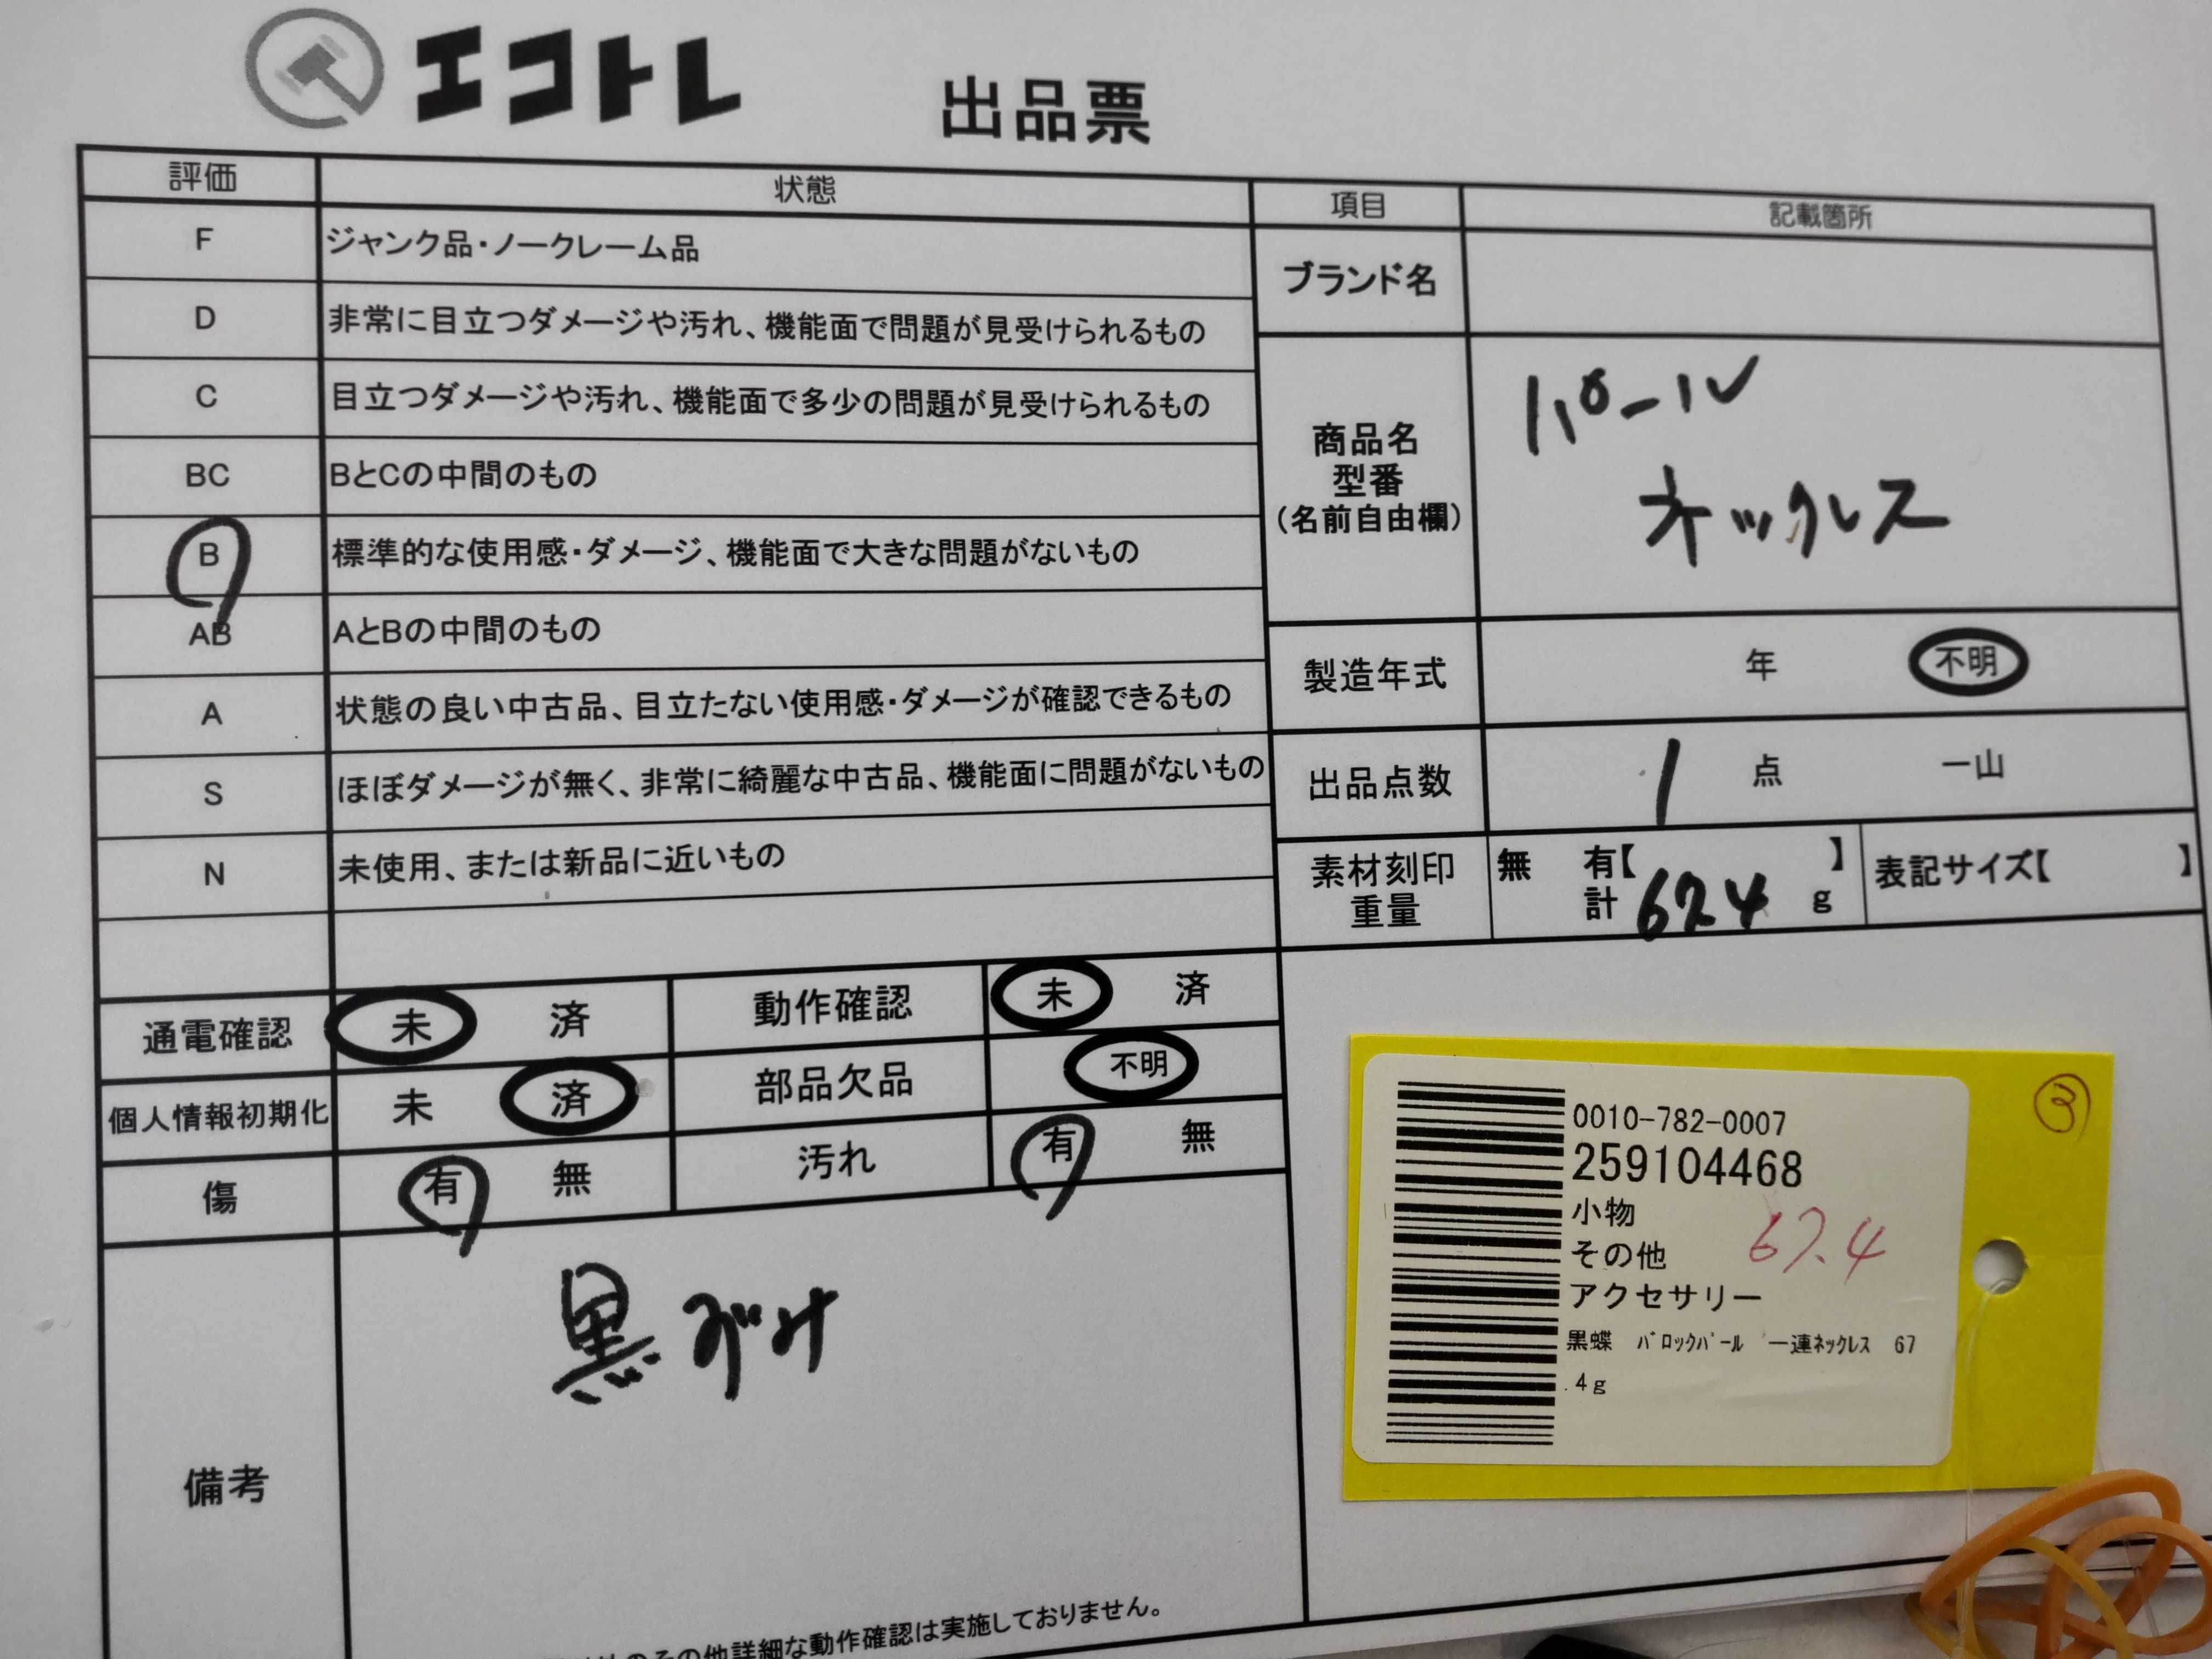 エコトレ 出品票
評価 状態
F ジャンク品・ノークレーム品
D 非常に目立つダメージや汚れ、機能面で問題が見受けられるもの
C 目立つダメージや汚れ、機能面で多少の問題が見受けられるもの
BC BとCの中間のもの
B 標準的な使用感・ダメージ、機能面で大きな問題がないもの
AB AとBの中間のもの
A 状態の良い中古品、目立たない使用感・ダメージが確認できるもの
S ほぼダメージが無く、非常に綺麗な中古品、機能面に問題がないもの
N 未使用、または新品に近いもの
項目 記載箇所
ブランド名
商品名
型番
(名前自由欄)
パール
ネックレス
製造年式 年 不明
出品点数 1 点 一山
素材刻印
重量
無 有【 】
計 67.4 g
表記サイズ【 】
通電確認 未 済 動作確認 未 済
個人情報初期化 未 済 部品欠品 不明
傷 有 無 汚れ 有 無
備考
黒ずみ
その他詳細な動作確認は実施しておりません。
③
0010-782-0007
259104468
小物
その他
67.4
アクセサリー
黒蝶 バロックパール 一連ネックレス 67
.4g